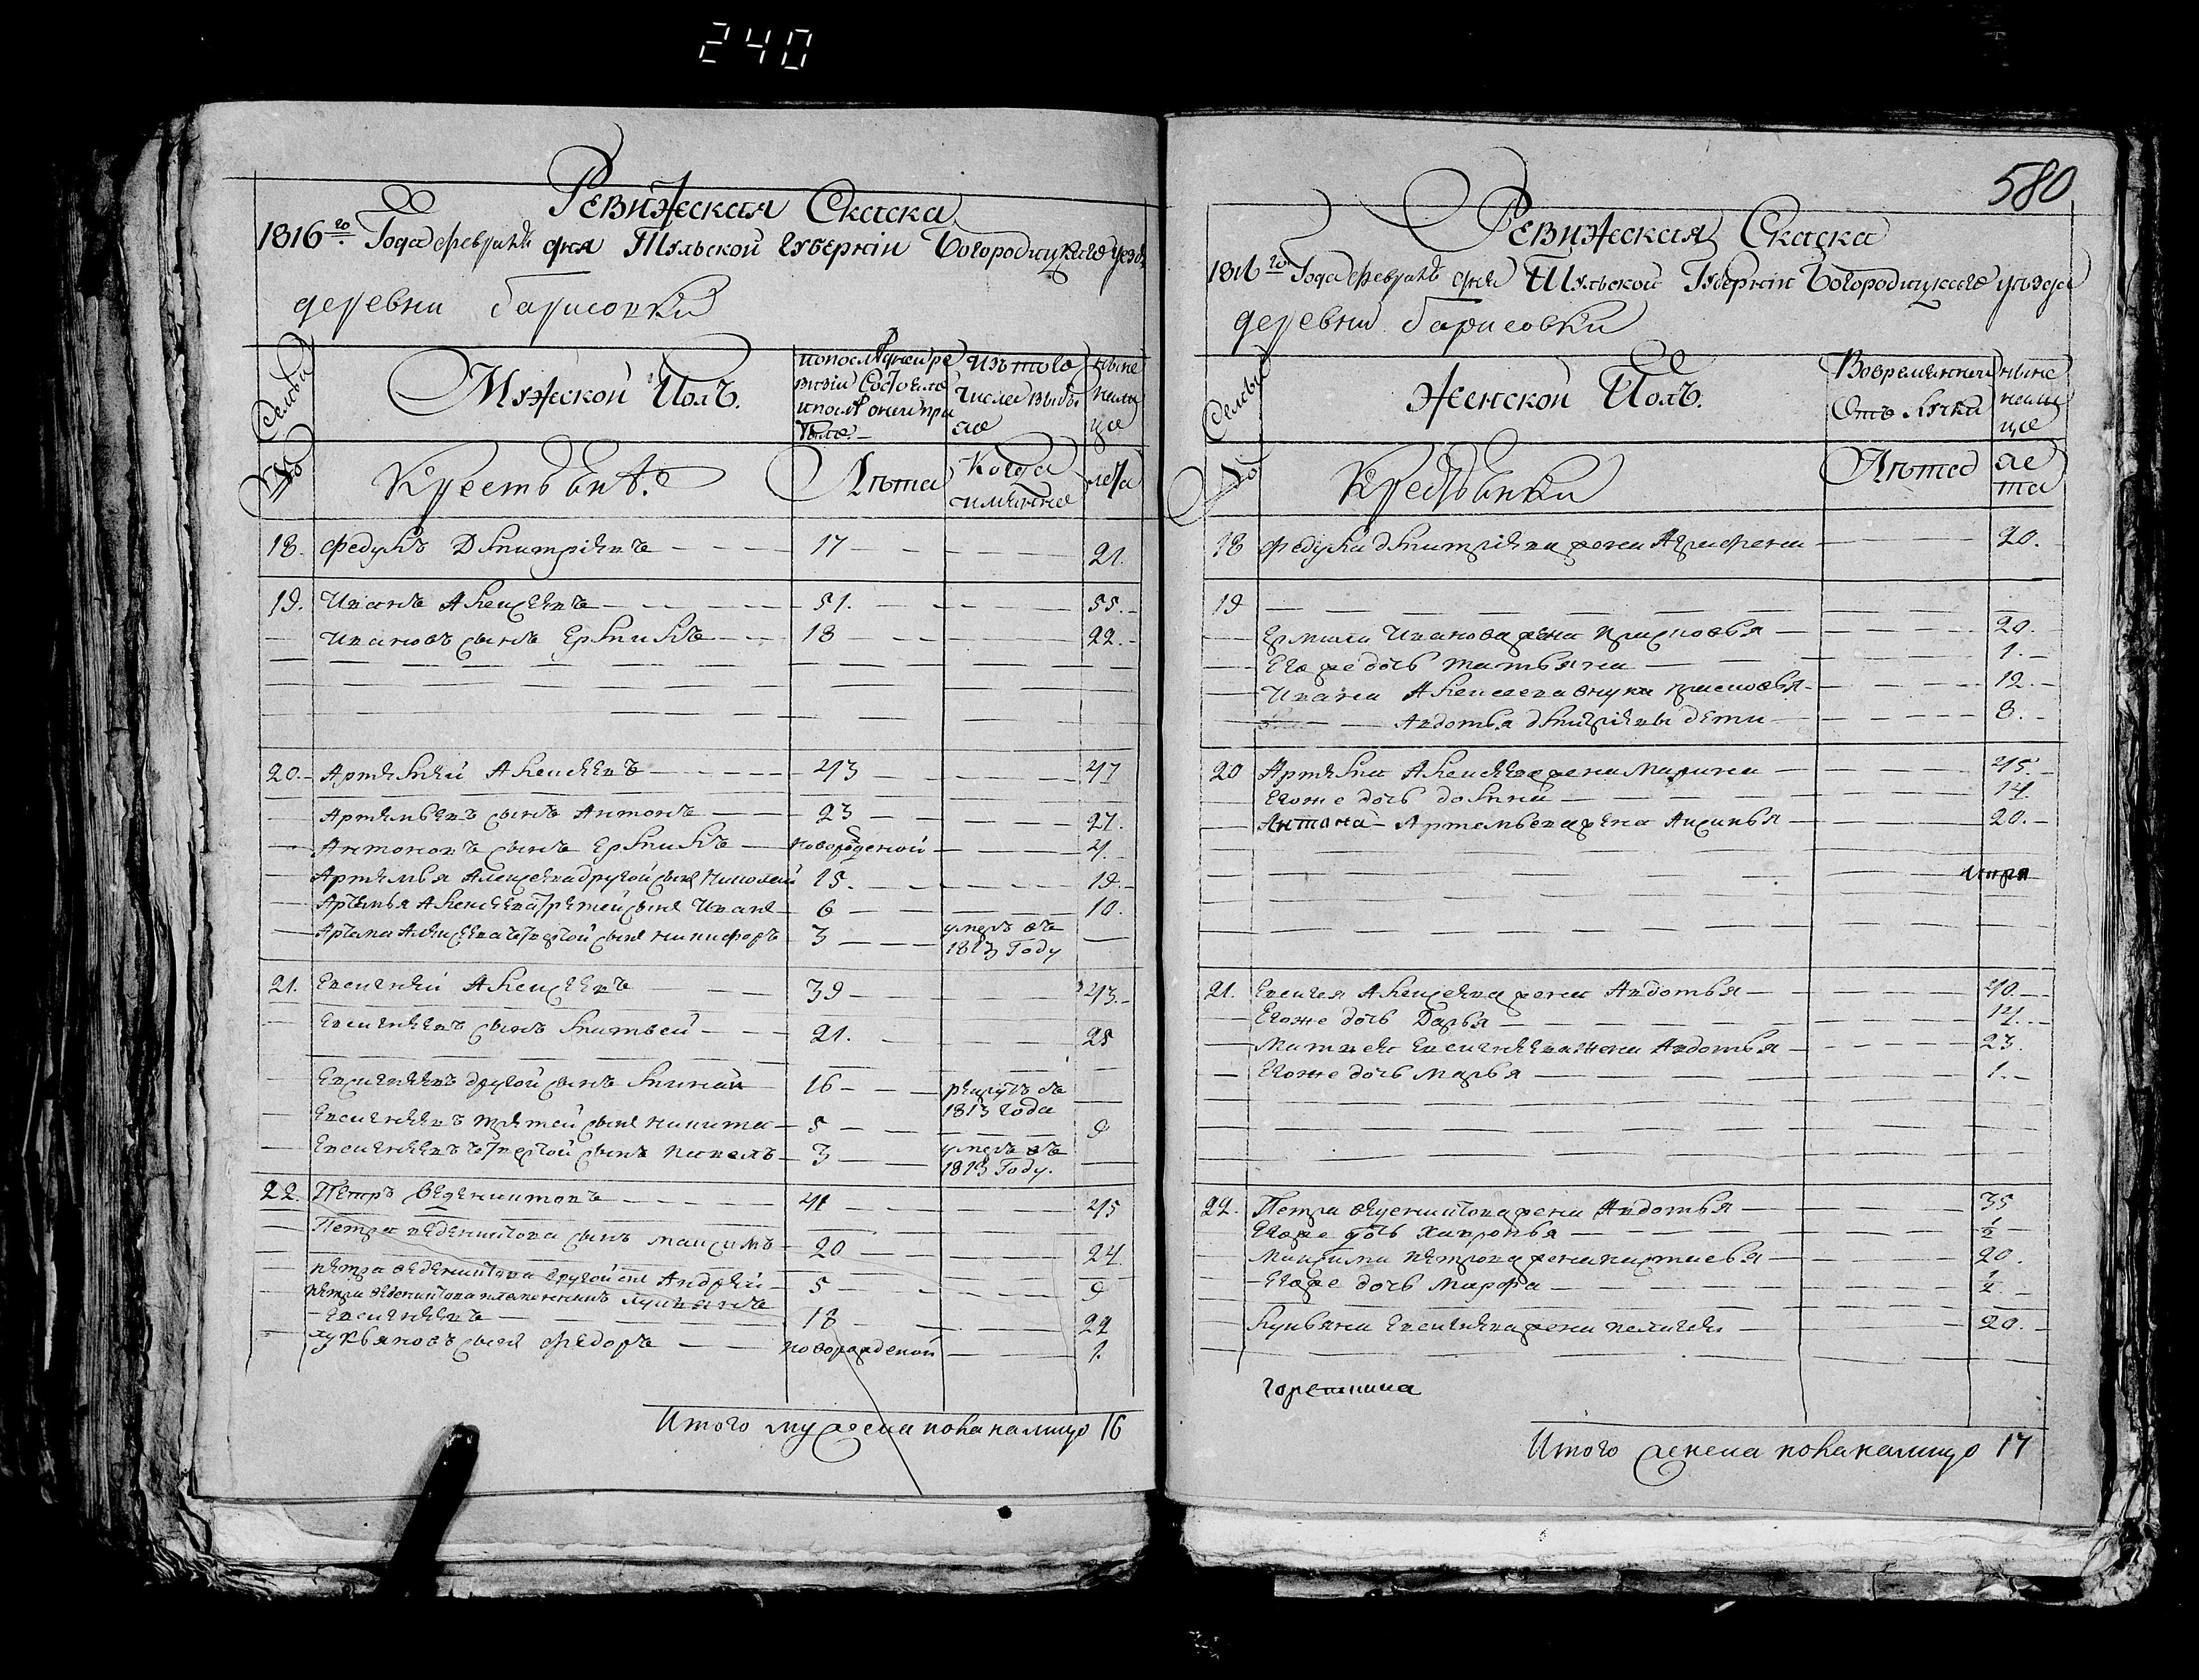 240
Ревижская Скаска
1816го Года февраля дня Тульской Губернїи Богородицкаго уезда
деревни барисовки
Семьи
Мужеской Полъ.
попоследней ре
визїи Состояло
ипосле оней при
было
Изъ того
числа выбы
ло
ныне
налиц
цо
№
Крестьяне
Лѣта
Когда
имянно
лета
18. Федулъ Дмитрїевъ 17 21.
19. Иванъ Алексеевъ 51. 55.
Ивановъ сынъ Ермилъ 18 22.
20. Артемей Алексеевъ 43 47
Артемьевъ сынъ Антонъ 23 27.
Антоновъ сынъ Ермилъ новорожденой 4.
Артемья Алексеева другой сынъ Николай 15. 19.
Артемья Алексеева третей сынъ Иванъ 6 10.
Артема Алексеева четвертой сынъ Никифоръ 3 умеръ въ
1813 Году
21. Евсигней Алексеевъ 39 43.
Евсигнеевъ сынъ Матвей 21. 25
Евсигнеевъ другой сынъ 16 рекрутъ съ
1813 года
Евсигнеевъ третей сынъ Никита 5 9
Евсигнеевъ четвертой сынъ Павелъ 3 умеръ въ
1813 Году.
22. Петръ Ведениктовъ 41 45
Петра веденихтова сынъ Максимъ 20 24.
петра веденихтова другой сынъ Андрей 5 9
петра веденихтова племянникъ лукьянъ
Евсигнеевъ 18 22
лукьяновъ сынъ Федоръ новорожденой 1.
Итого мужеска пола налицо 16
580
Ревижская Скаска
1816го Года февраля дня Тульской Губернїи Богородицкаго уѣзда
деревни барисовки
Семьи
Женской Полъ.
Вовременной
Отлучки
ныне
налиц
цо
№
Крестьянки
Лѣта
ле
та
18 Федула дмитрїева жена Аграфена 20.
19
Ермила Иванова жена Прасковья 20.
Егоже дочь татьяна 1.
Ивана Алексеева внуки прасковья 12.
Авдотья дмитрїевы дети 8.
20 Артема Алексеева жена Марина 45.
Егоже дочь домна 14
Антона Артемьева жена Аксинья 20.
21. Евсигея Алексеева жена Авдотья 40.
Егоже дочь Дарья 14.
Матвея Евсигнеева жена Авдотья 23.
Егоже дочь марья 1.
22. Петра веденихтова жена Авдотья 35
Егоже дочь Хавронья 1/2
Максима петрова жена настасья 20.
Егоже дочь Марфа 1/2
Лукьяна Евсигнева жена пелагея 20.
Итого женска пола налицо 17